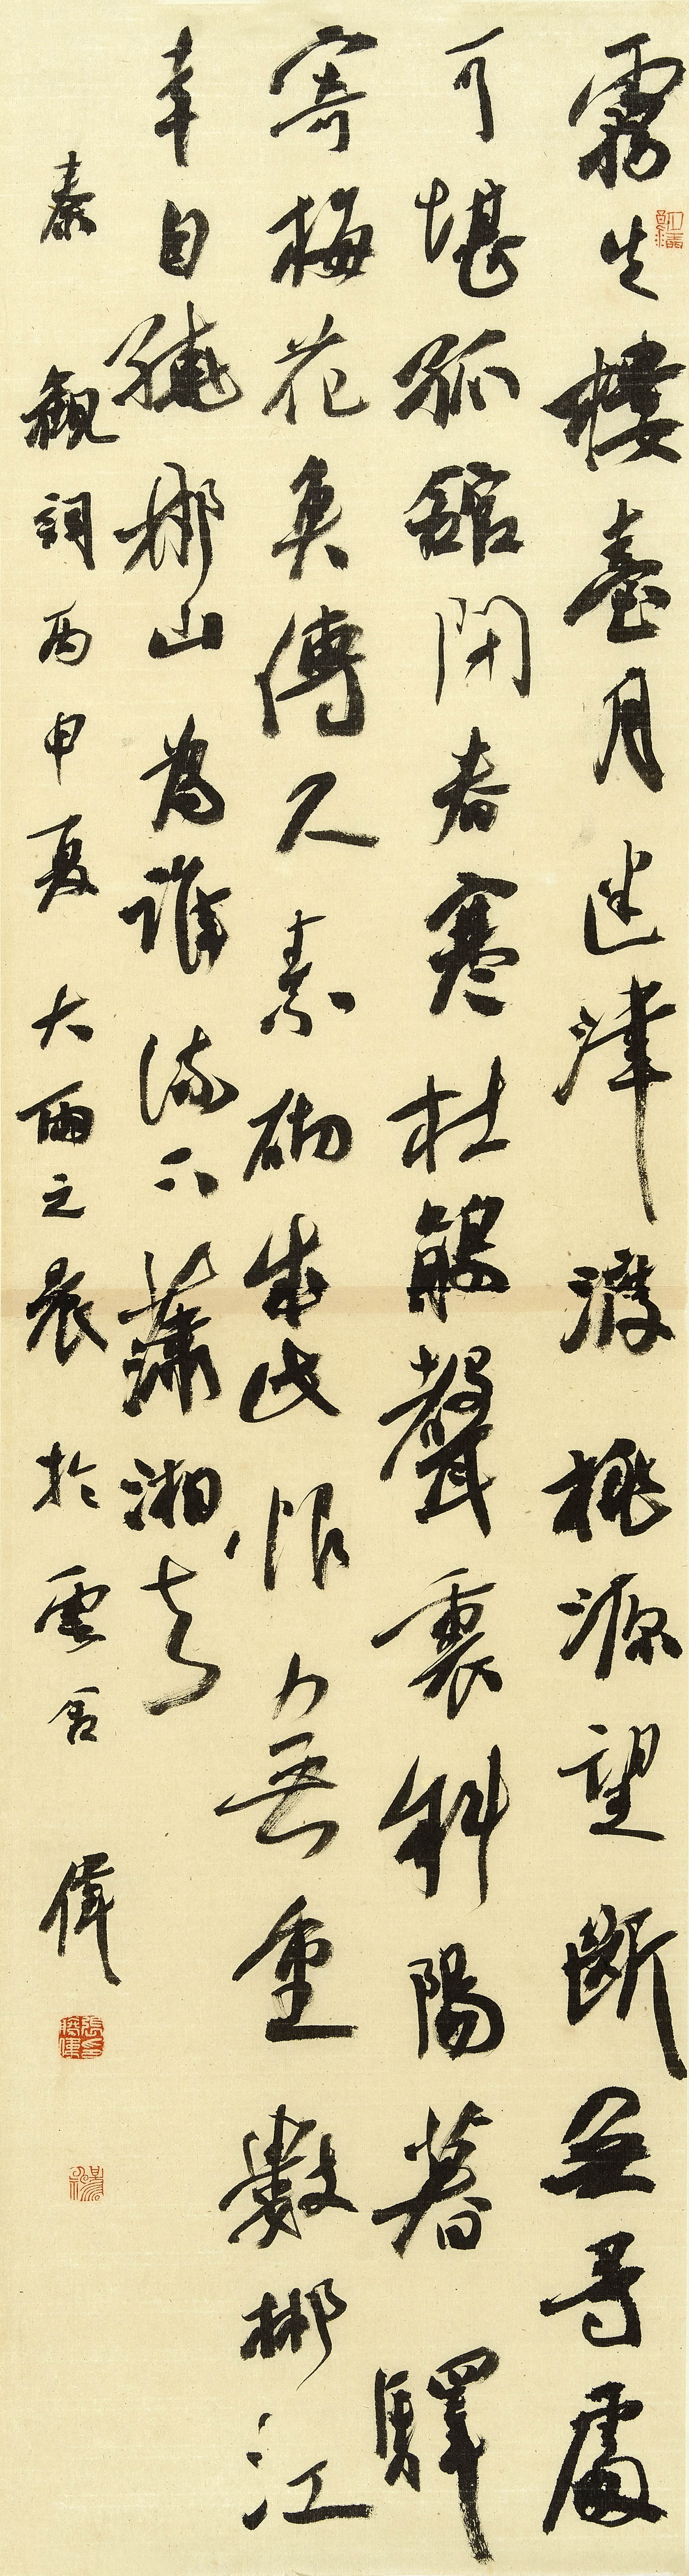 霧失樓臺月迷津渡桃源望斷無尋處
可堪孤館閉春寒杜鵑聲裏斜陽暮驛
寄梅花魚傳尺素砌成此恨無重數郴江
幸自繞郴山為誰流下瀟湘去
秦觀詞丙申夏大雨之晨於雲舍偉